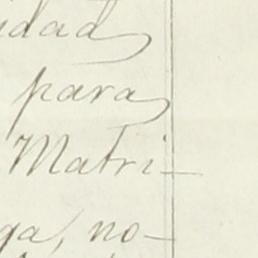 idad
para
Matri-
ga, no-